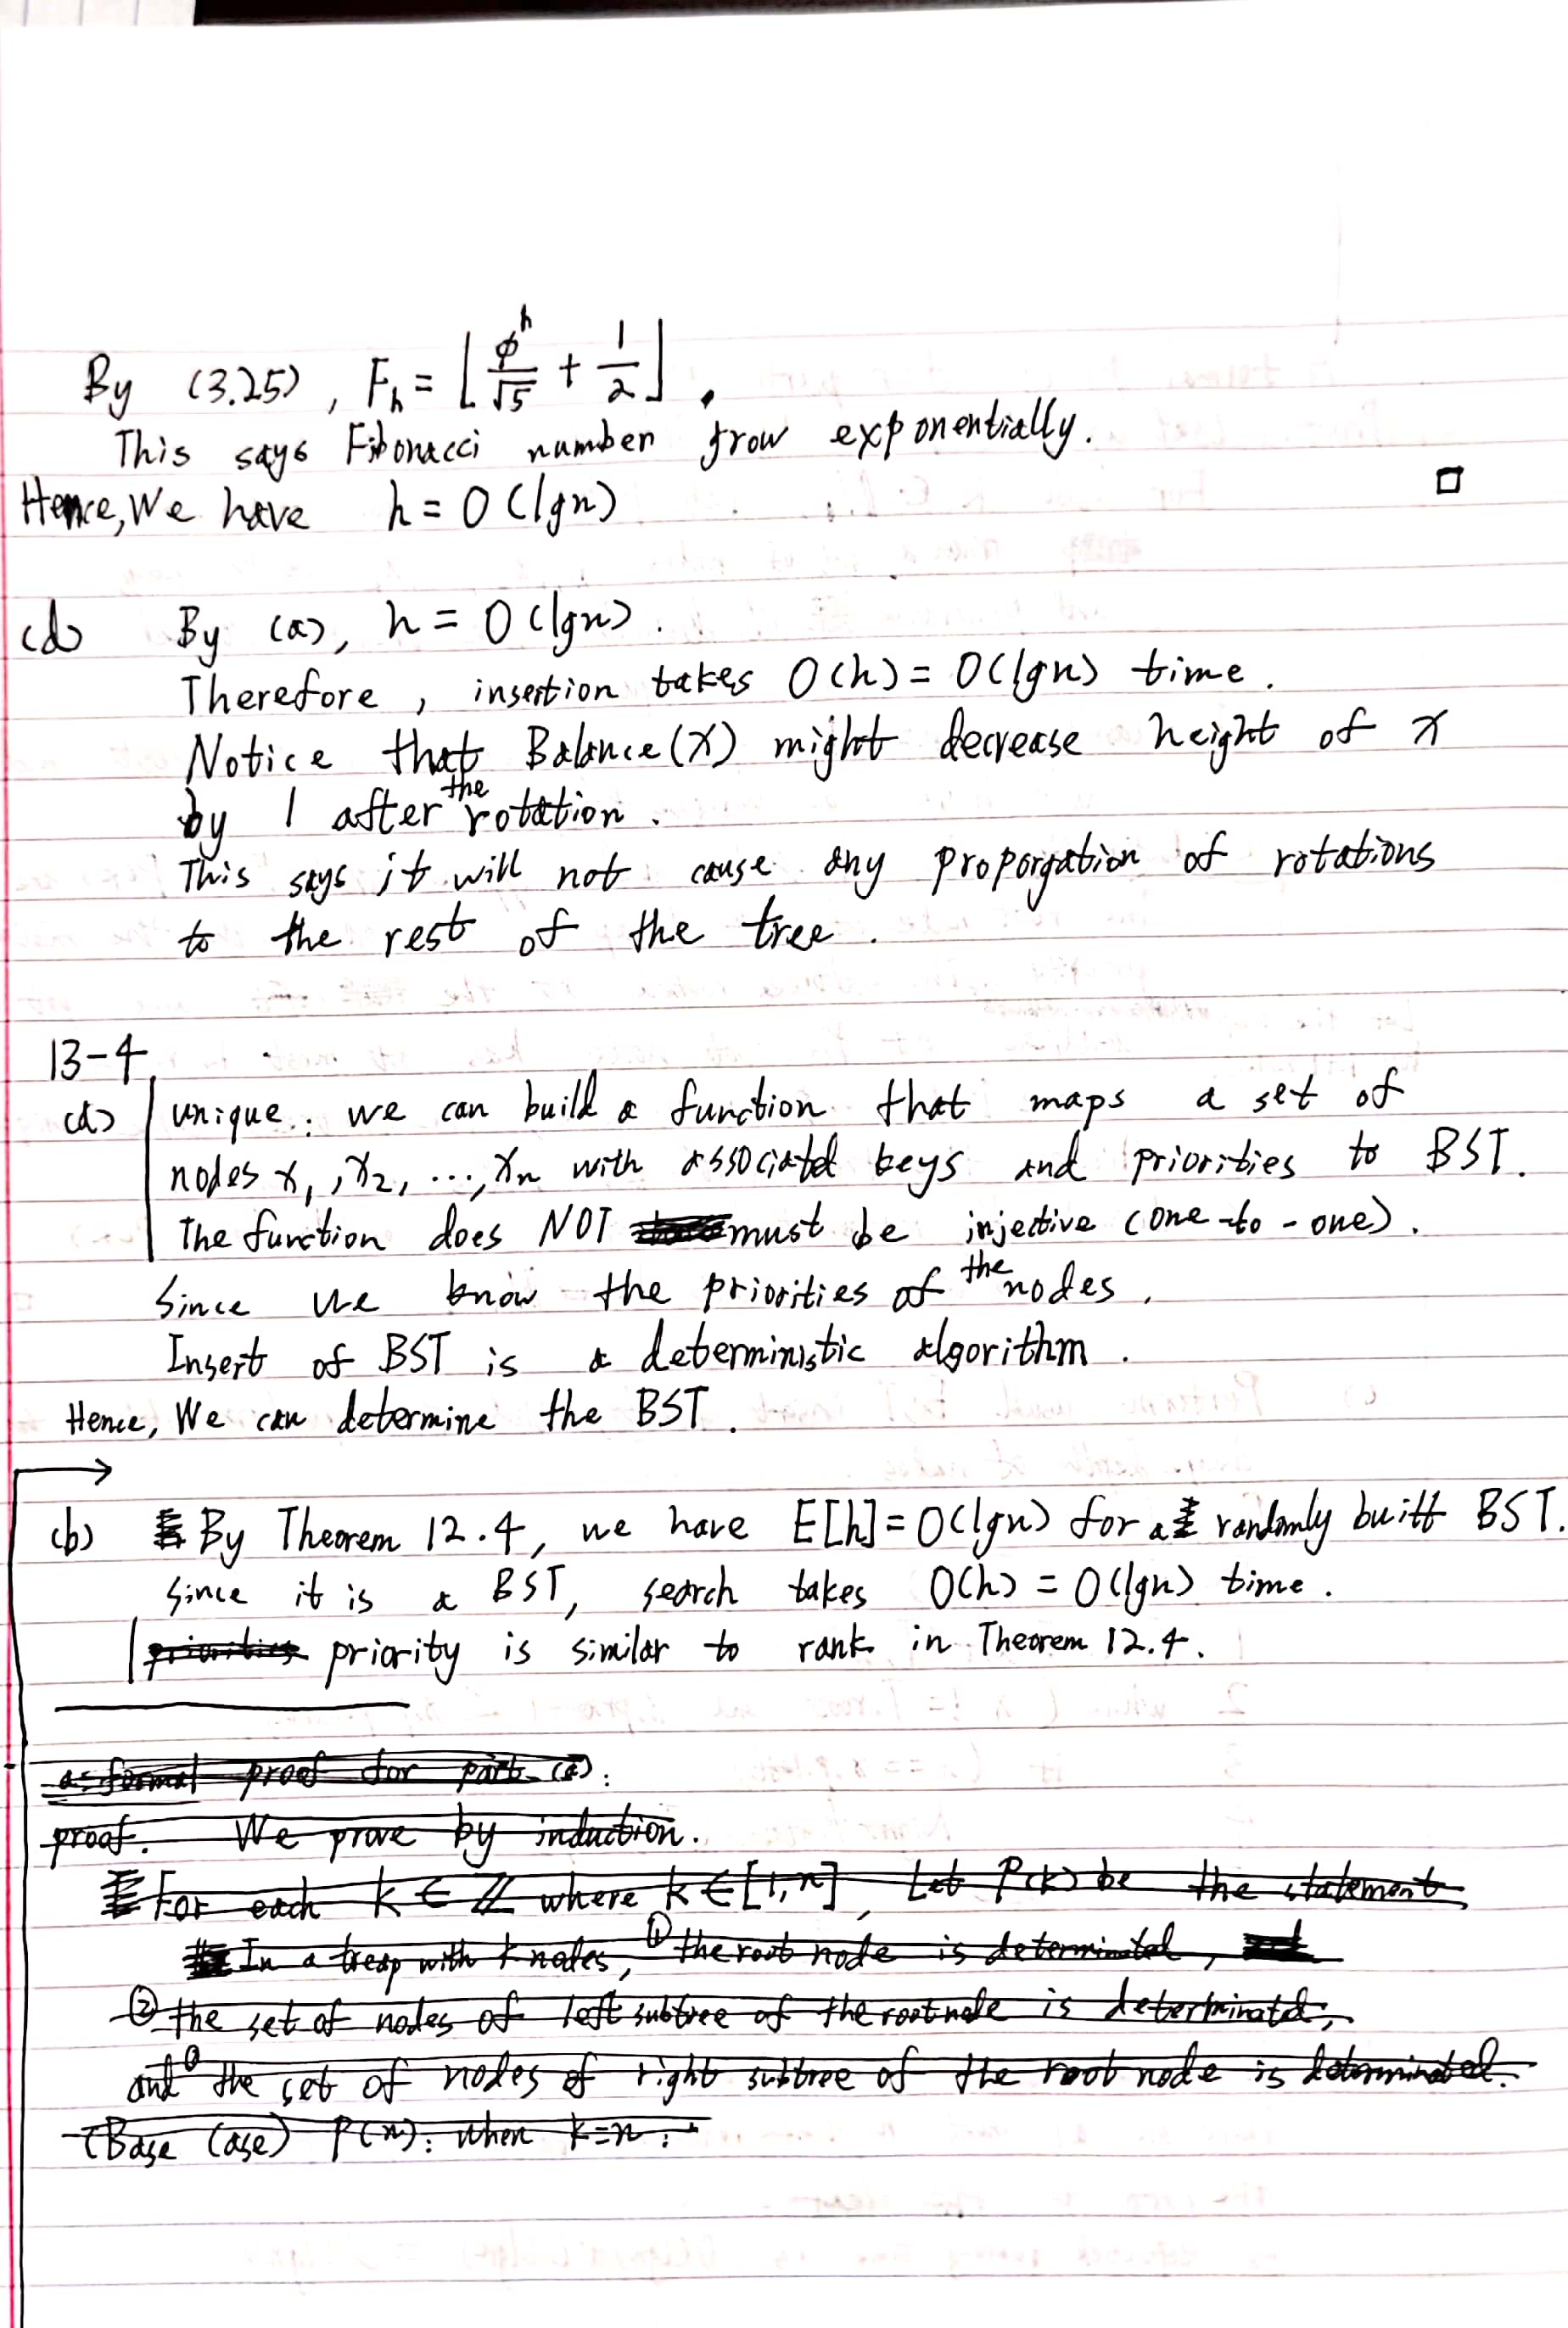 By (3.25), F_h = ⌊ϕ^h/√5 + 1/2⌋.
This says Fibonacci number grow exponentially.
Hence, We have h = O(lgn) □
(d) By (a), h = O(lgn).
Therefore, insertion takes O(h) = O(lgn) time.
Notice that Balance(x) might decrease height of x
by 1 after the rotation.
This says it will not cause any proporgation of rotations
to the rest of the tree.
13-4.
(a) unique: we can build a function that maps a set of
nodes x₁, x₂, ..., xₙ with associated keys and priorities to BST.
The function does NOT must be injective (one-to-one).
Since we know the priorities of the nodes,
Insert of BST is a deterministic algorithm.
Hence, We can determine the BST.
(b) By Theorem 12.4, we have E[h] = O(lgn) for a randomly built BST.
Since it is a BST, search takes O(h) = O(lgn) time.
priorities priority is similar to rank in Theorem 12.4.
a formal proof for part (a):
proof. We prove by induction.
For each k ∈ ℤ where k ∈ [1, n], Let P(k) be the statement
In a treap with k nodes, ① the root node is determinated,
② the set of nodes of left subtree of the root node is determinated,
and the set of nodes of right subtree of the root node is determinated.
(Base Case) P(n): when k=n: